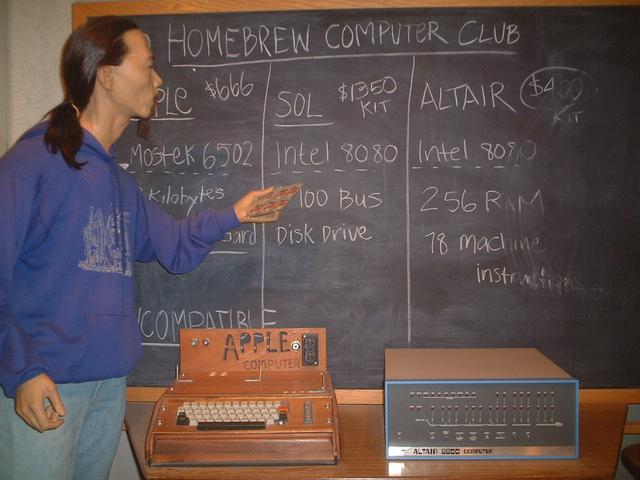 HOMEBREW COMPUTER CLUB
PLE $666
MOSTEK 6502
Kilobytes
SOL $1350
KIT
Intel 8080
100 BUS
DISK DRIVE
ALTAIR $400
KIT
Intel 8080
256 RAM
78 machine
instructions...
NCOMPATIBLE
APPLE
COMPUTER
ALTAIR 8800 COMPUTER